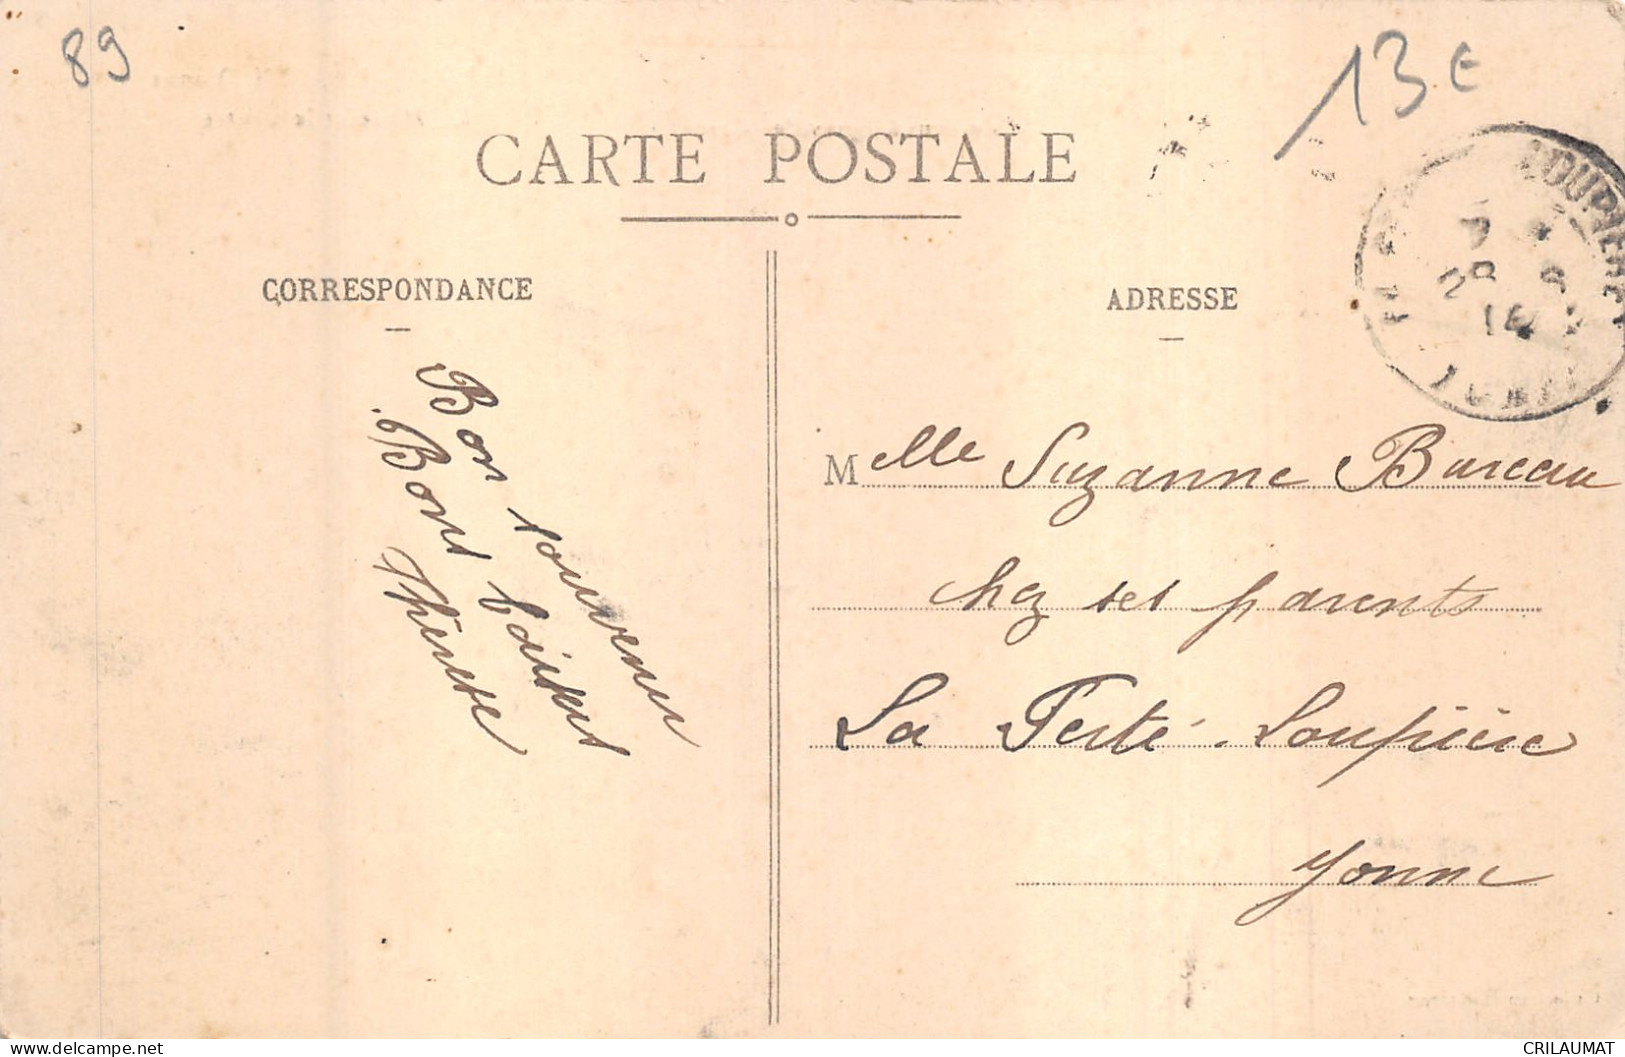 89
13 €
CARTE POSTALE
CORRESPONDANCE
ADRESSE
Bon souvenir
Bons baisers
Thérèse
Melle Suzanne Bureau
chez ses parents
La Ferté-Loupière
Yonne
CRILAUMAT